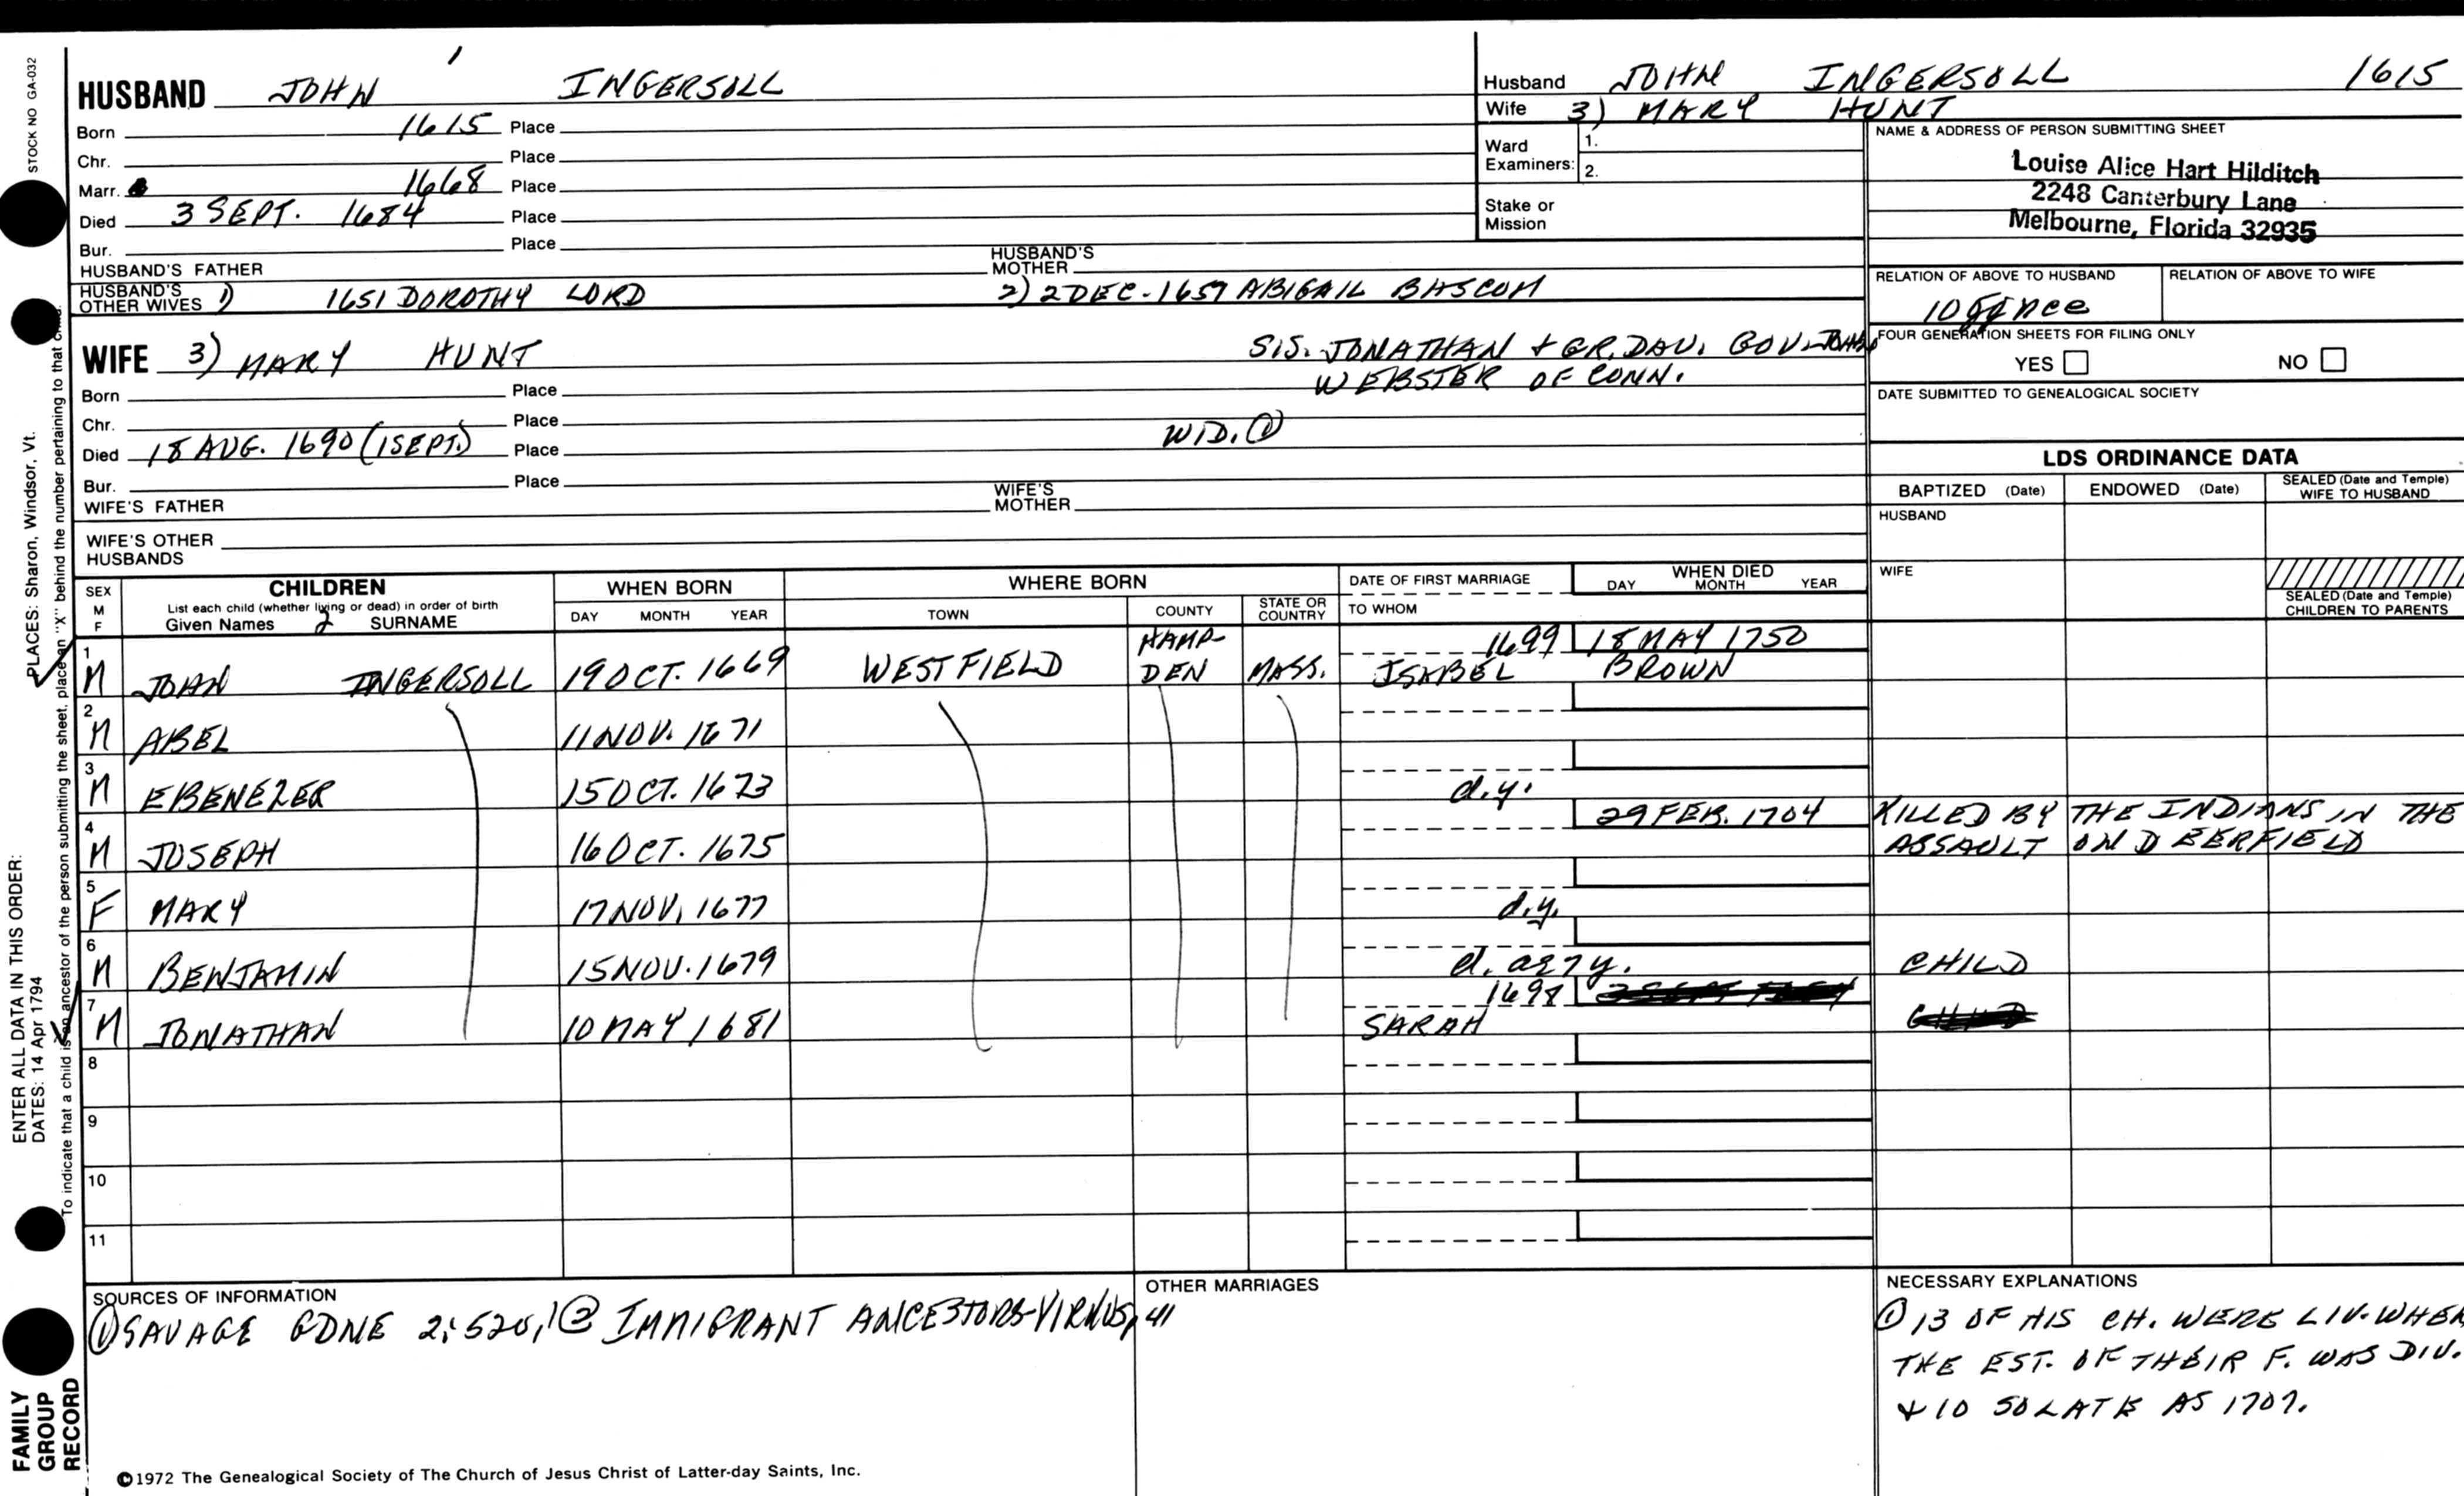 STOCK NO GA-032
PLACES: Sharon, Windsor, Vt.
ENTER ALL DATA IN THIS ORDER:
DATES: 14 Apr 1794
To indicate that a child is an ancestor of the person submitting the sheet, place an "X" behind the number pertaining to that child.
FAMILY
GROUP
RECORD
HUSBAND JOHN 1 INGERSOLL
Born 1615 Place
Chr. Place
Marr. 1668 Place
Died 3 SEPT. 1684 Place
Bur. Place
HUSBAND'S FATHER HUSBAND'S MOTHER
HUSBAND'S OTHER WIVES 1) 1651 DOROTHY LORD 2) 2 DEC. 1657 ABIGAIL BASCOM
WIFE 3) MARY HUNT SIS. JONATHAN + GR. DAU. GOV. JOHN
WEBSTER OF CONN.
Born Place
Chr. Place
Died 18 AUG. 1690 (1 SEPT.) Place WID. ①
Bur. Place
WIFE'S FATHER WIFE'S MOTHER
WIFE'S OTHER HUSBANDS
Husband JOHN INGERSOLL 1615
Wife 3) MARY HUNT
Ward Examiners: 1.
2.
Stake or Mission
NAME & ADDRESS OF PERSON SUBMITTING SHEET
Louise Alice Hart Hilditch
2248 Canterbury Lane
Melbourne, Florida 32935
RELATION OF ABOVE TO HUSBAND RELATION OF ABOVE TO WIFE
FOUR GENERATION SHEETS FOR FILING ONLY
YES NO
DATE SUBMITTED TO GENEALOGICAL SOCIETY
LDS ORDINANCE DATA
BAPTIZED (Date) ENDOWED (Date) SEALED (Date and Temple) WIFE TO HUSBAND
HUSBAND
WIFE
SEALED (Date and Temple) CHILDREN TO PARENTS
SEX M F CHILDREN WHEN BORN WHERE BORN DATE OF FIRST MARRIAGE WHEN DIED
List each child (whether living or dead) in order of birth
Given Names 2 SURNAME DAY MONTH YEAR TOWN COUNTY STATE OR COUNTRY TO WHOM DAY MONTH YEAR
1 M JOHN INGERSOLL 19 OCT. 1669 WESTFIELD HAMP-DEN MASS. 1699 ISABEL BROWN 18 MAY 1750
2 M ABEL 11 NOV. 1671
3 M EBENEZER 15 OCT. 1673 d.y.
4 M JOSEPH 16 OCT. 1675 29 FEB. 1704 KILLED BY THE INDIANS IN THE
ASSAULT ON DEERFIELD
5 F MARY 17 NOV. 1677 d.y.
6 M BENJAMIN 15 NOV. 1679 CHILD
7 M JONATHAN 10 MAY 1681 1698 SARAH
8
9
10
11
SOURCES OF INFORMATION
① SAVAGE GDNE 2:520, ② IMMIGRANT ANCESTORS-VIRKUS, 41
OTHER MARRIAGES
NECESSARY EXPLANATIONS
① 13 OF HIS CH. WERE LIV. WHEN
THE EST. OF THEIR F. WAS DIV.
+ 10 SO LATE AS 1707.
©1972 The Genealogical Society of The Church of Jesus Christ of Latter-day Saints, Inc.